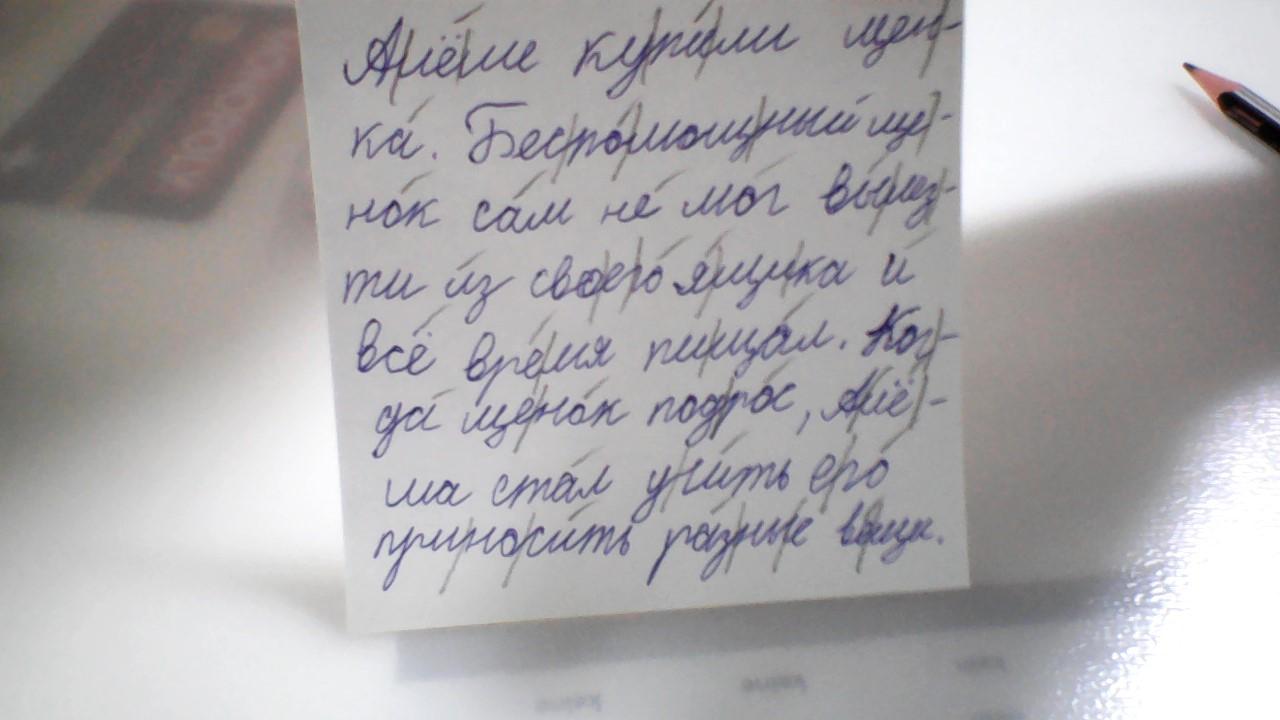 Алёше купили щен-
ка. Беспомощный ще-
нок сам не мог вылез-
ти из своего ящика и
всё время пищал. Ког-
да щенок подрос, Алё-
ша стал учить его
приносить разные вещи.